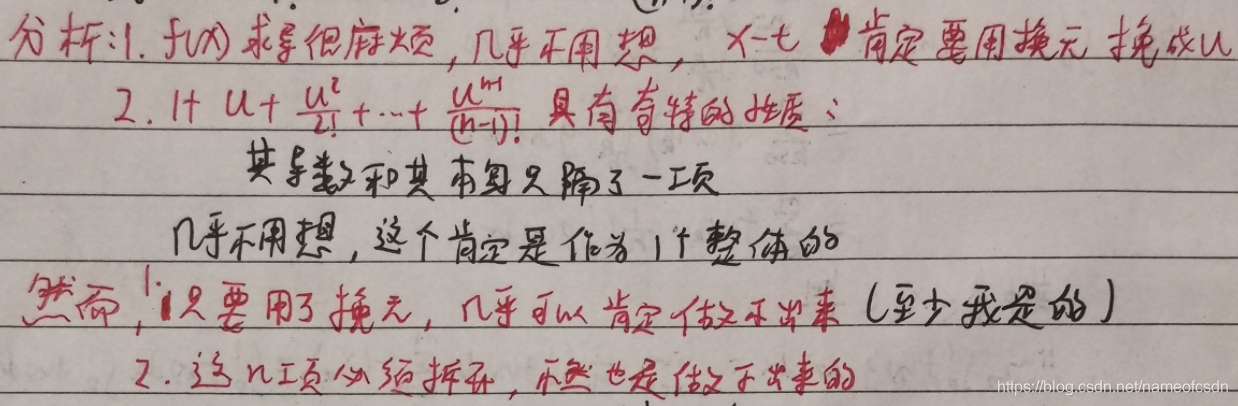 分析:1. f(x) 求导很麻烦,几乎不用想, x-t 肯定要用换元 换成u
2. 1+ u + u²/2! + ... + uⁿ⁻¹/(n-1)! 具有奇特的性质:
其导数和其本身只隔了一项
几乎不用想,这个肯定是作为1个整体的
然而, 1. 只要用了换元, 几乎可以肯定做不出来 (至少我是的)
2. 这n项必须拆开, 不然也是做不出来的
https://blog.csdn.net/nameofcsdn